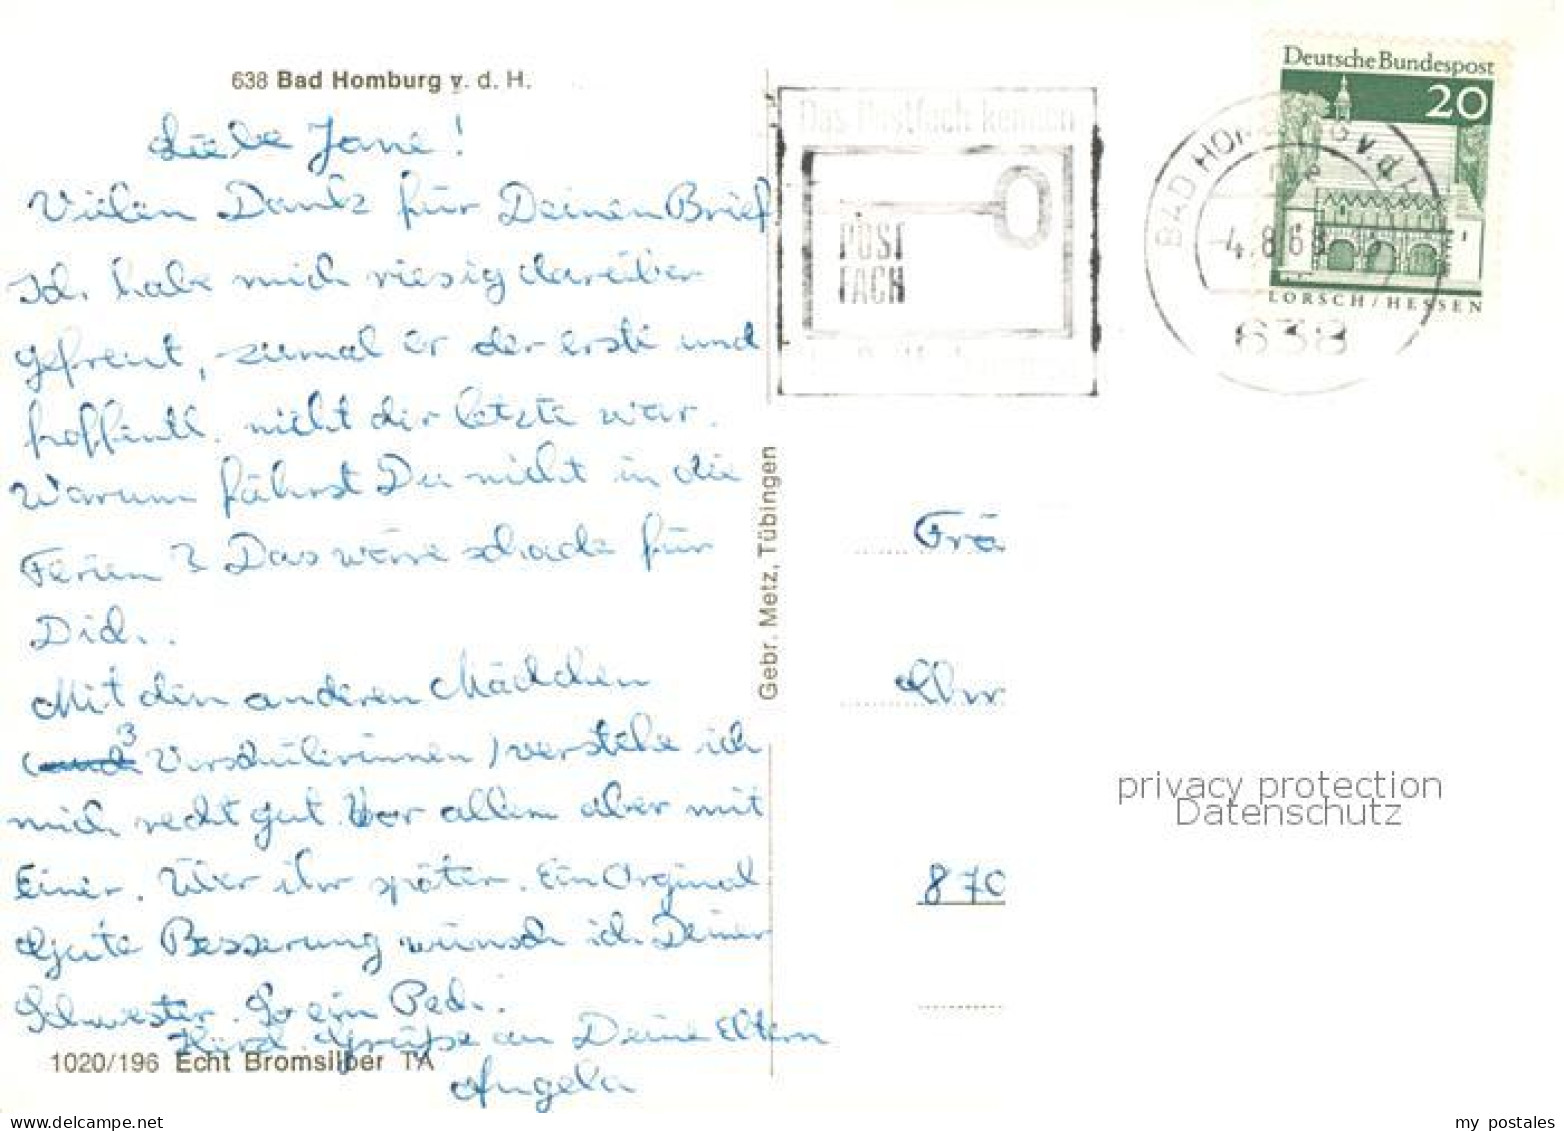 638 Bad Homburg v. d. H.
Liebe Jane!
Vielen Dank für Deinen Brief
Ich habe mich riesig darüber
gefreut, zumal er der erste und
hoffentl. nicht der letzte war.
Warum fährst Du nicht in die
Ferien? Das wäre schade für
Dich.
Mit den anderen Mädchen
(3 Vorschülerinnen) verstehe ich
mich recht gut. Vor allem aber mit
Einer. Über ihr später. Ein Orginal
Gute Besserung wünsch ich Deiner
Schwester. So ein Pech.
Herzl. Grüße an Deine Eltern
Angela
1020/196 Echt Bromsilber TA
Gebr. Metz, Tübingen
Das Postfach kennen
POST
FACH
BAD HOMBURG v.d.H
-4.8.69
638
Deutsche Bundespost
20
LORSCH/HESSEN
Frä
870
privacy protection
Datenschutz
www.ansichtskartenversand.com
my postales